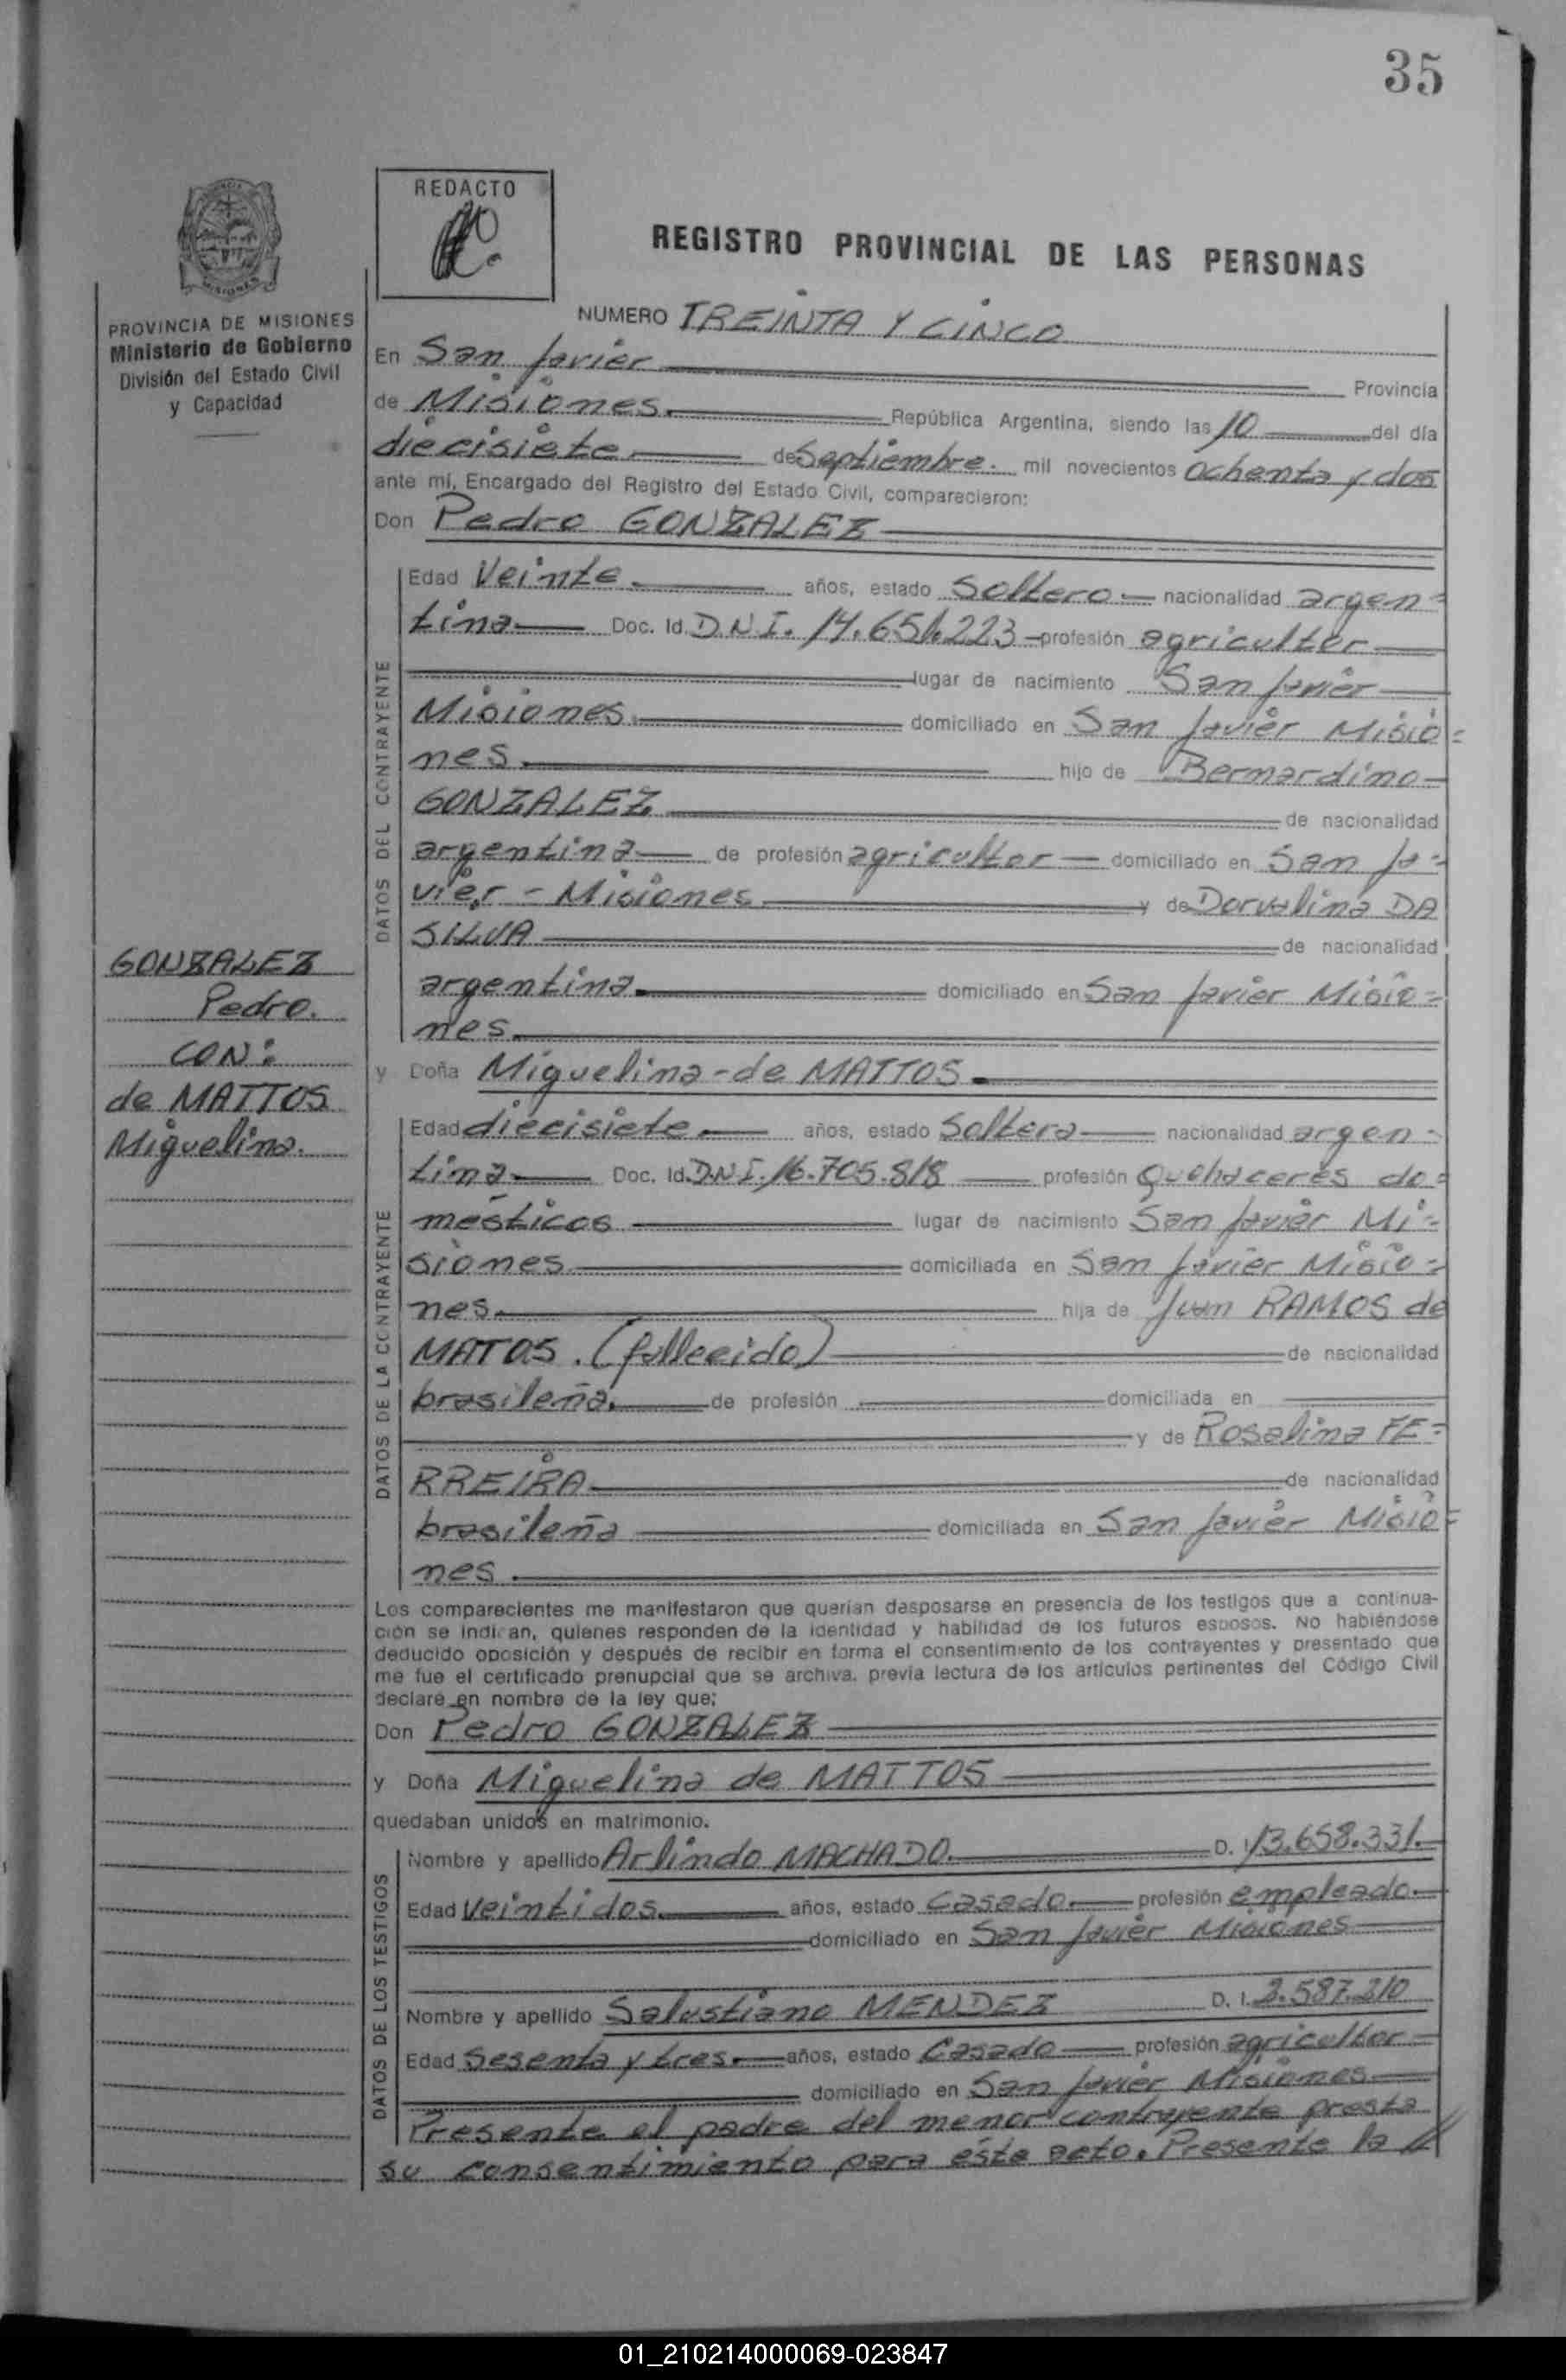 35
REDACTO
REGISTRO PROVINCIAL DE LAS PERSONAS
PROVINCIA DE MISIONES
Ministerio de Gobierno
División del Estado Civil
y Capacidad
NUMERO TREINTA Y CINCO
En San Javier Provincia
de Misiones. República Argentina, siendo las 10 del día
diecisiete de Septiembre. mil novecientos ochenta y dos
ante mí, Encargado del Registro del Estado Civil, comparecieron:
Don Pedro GONZALEZ
DATOS DEL CONTRAYENTE
Edad Veinte. años, estado Soltero nacionalidad argen=
tina Doc. Id. D.N.I. 14.651.223 profesión agricultor
lugar de nacimiento San Javier
Misiones. domiciliado en San Javier Misio=
nes. hijo de Bernardino
GONZALEZ de nacionalidad
argentina de profesión agricultor domiciliado en San Ja=
vier - Misiones y de Dorvalina DA
SILVA de nacionalidad
argentina. domiciliado en San Javier Misio=
nes.
GONZALEZ
Pedro.
CON:
de MATTOS
Miguelina.
y Doña Miguelina-de MATTOS.
DATOS DE LA CONTRAYENTE
Edad diecisiete. años, estado Soltera nacionalidad argen=
tina Doc. Id. D.N.I. 16.705.818 profesión Quehaceres do=
mésticos lugar de nacimiento San Javier Mi=
siones domiciliada en San Javier Misio=
nes. hija de Juan RAMOS de
MATOS. (fallecido) de nacionalidad
brasileña. de profesión domiciliada en
y de Rosalina FE=
RREIRA de nacionalidad
brasileña domiciliada en San Javier Misio=
nes.
Los comparecientes me manifestaron que querían desposarse en presencia de los testigos que a continua-
ción se indican, quienes responden de la identidad y habilidad de los futuros esposos. No habiéndose
deducido oposición y después de recibir en forma el consentimiento de los contrayentes y presentado que
me fue el certificado prenupcial que se archiva, previa lectura de los artículos pertinentes del Código Civil
declaré en nombre de la ley que:
Don Pedro GONZALEZ
y Doña Miguelina de MATTOS
quedaban unidos en matrimonio.
DATOS DE LOS TESTIGOS
Nombre y apellido Arlindo MACHADO. D. I. 13.658.331.
Edad Veintidos. años, estado Casado. profesión empleado.
domiciliado en San Javier Misiones
Nombre y apellido Salustiano MENDEZ D. I. 2.587.210
Edad Sesenta y tres. años, estado Casado profesión agricultor
domiciliado en San Javier Misiones
Presente el padre del menor contrayente presta
su consentimiento para éste acto. Presente la //
01_210214000069-023847